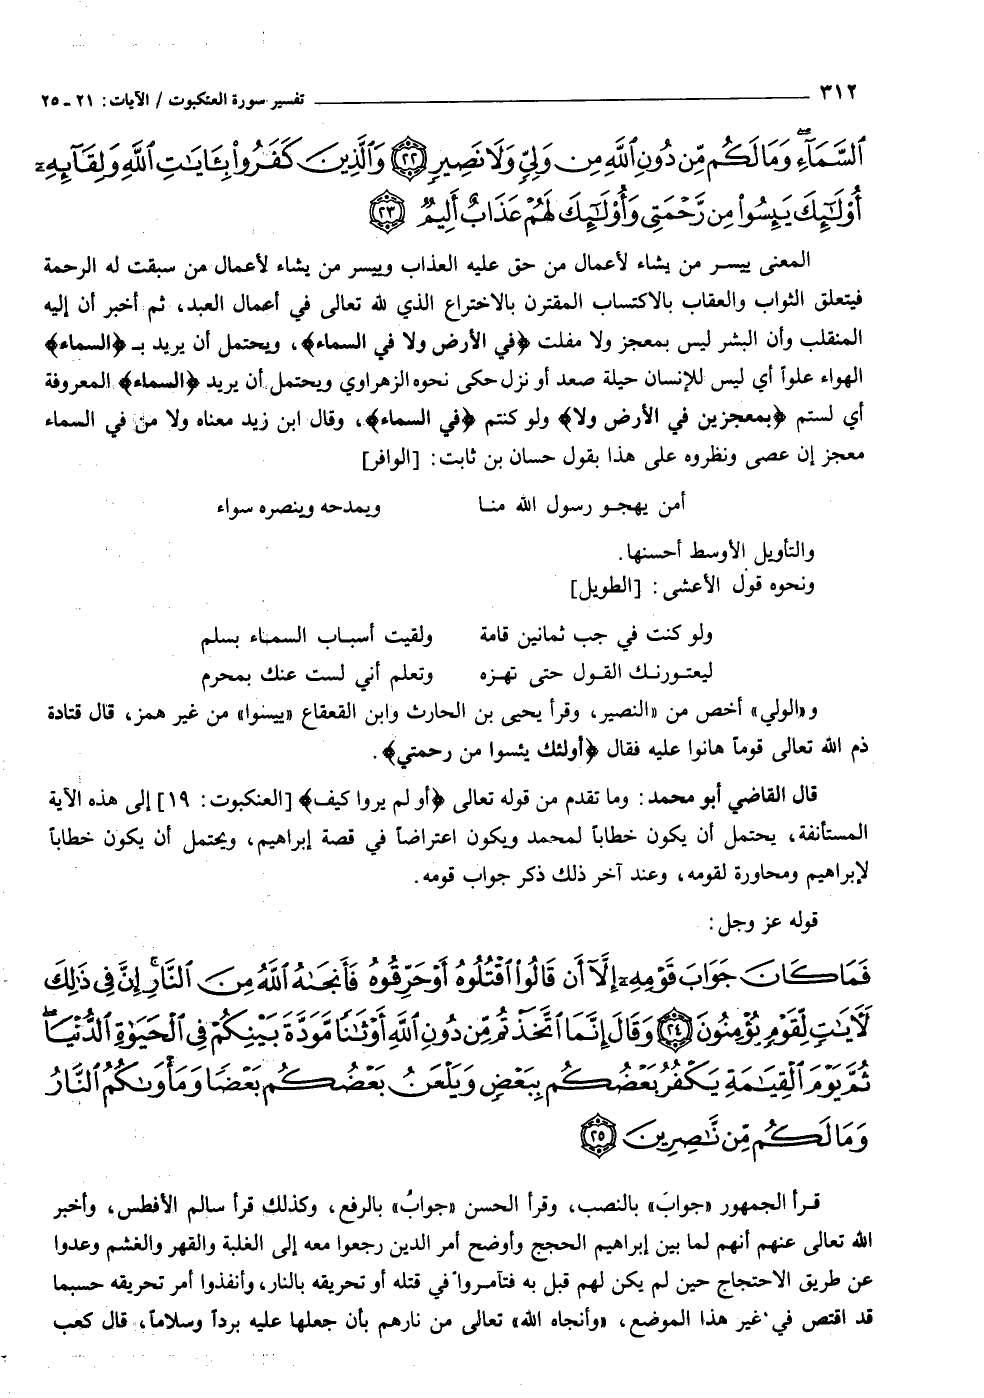 ٣١٢ تفسير سورة العنكبوت / الآيات: ٢١ - ٢٥
ٱلسَّمَآءِ وَمَا لَكُم مِّن دُونِ ٱللَّهِ مِن وَلِيٍّ وَلَا نَصِيرٍ ﴿٢٢﴾ وَٱلَّذِينَ كَفَرُوا۟ بِـَٔايَـٰتِ ٱللَّهِ وَلِقَآئِهِۦٓ
أُو۟لَـٰٓئِكَ يَئِسُوا۟ مِن رَّحْمَتِى وَأُو۟لَـٰٓئِكَ لَهُمْ عَذَابٌ أَلِيمٌ ﴿٢٣﴾
المعنى ييسر من يشاء لأعمال من حق عليه العذاب وييسر من يشاء لأعمال من سبقت له الرحمة
فيتعلق الثواب والعقاب بالاكتساب المقترن بالاختراع الذي لله تعالى في أعمال العبد، ثم أخبر أن إليه
المنقلب وأن البشر ليس بمعجز ولا مفلت ﴿في الأرض ولا في السماء﴾، ويحتمل أن يريد بـ ﴿السماء﴾
الهواء علواً أي ليس للإنسان حيلة صعد أو نزل حكى نحوه الزهراوي ويحتمل أن يريد ﴿السماء﴾ المعروفة
أي لستم ﴿بمعجزين في الأرض ولا﴾ ولو كنتم ﴿في السماء﴾، وقال ابن زيد معناه ولا من في السماء
معجز إن عصى ونظروه على هذا بقول حسان بن ثابت: [الوافر]
أمن يهجـو رسول الله منـا ويمدحه وينصره سواء
والتأويل الأوسط أحسنها.
ونحوه قول الأعشى: [الطويل]
ولو كنت في جب ثمانين قامة ولقيت أسبـاب السمـاء بسلم
ليعتـورنـك القـول حتى تهـزه وتعلم أني لست عنك بمحرم
و«الولي» أخص من «النصير، وقرأ يحيى بن الحارث وابن القعقاع «ييسوا» من غير همز، قال قتادة
ذم الله تعالى قوماً هانوا عليه فقال ﴿أولئك يئسوا من رحمتي﴾.
قال القاضي أبو محمد: وما تقدم من قوله تعالى ﴿أو لم يروا كيف﴾ [العنكبوت: ١٩] إلى هذه الآية
المستأنفة، يحتمل أن يكون خطاباً لمحمد ويكون اعتراضاً في قصة إبراهيم، ويحتمل أن يكون خطاباً
لإبراهيم ومحاورة لقومه، وعند آخر ذلك ذكر جواب قومه.
قوله عز وجل:
فَمَا كَانَ جَوَابَ قَوْمِهِۦٓ إِلَّآ أَن قَالُوا۟ ٱقْتُلُوهُ أَوْ حَرِّقُوهُ فَأَنجَىٰهُ ٱللَّهُ مِنَ ٱلنَّارِ ۚ إِنَّ فِى ذَٰلِكَ
لَـَٔايَـٰتٍ لِّقَوْمٍ يُؤْمِنُونَ ﴿٢٤﴾ وَقَالَ إِنَّمَا ٱتَّخَذْتُم مِّن دُونِ ٱللَّهِ أَوْثَـٰنًا مَّوَدَّةَ بَيْنِكُمْ فِى ٱلْحَيَوٰةِ ٱلدُّنْيَا ۖ
ثُمَّ يَوْمَ ٱلْقِيَـٰمَةِ يَكْفُرُ بَعْضُكُم بِبَعْضٍ وَيَلْعَنُ بَعْضُكُم بَعْضًا وَمَأْوَىٰكُمُ ٱلنَّارُ
وَمَا لَكُم مِّن نَّـٰصِرِينَ ﴿٢٥﴾
قـرأ الجمهور «جوابَ» بالنصب، وقرأ الحسن «جوابُ» بالرفع، وكذلك قرأ سالم الأفطس، وأخبر
الله تعالى عنهم أنهم لما بين إبراهيم الحجج وأوضح أمر الدين رجعوا معه إلى الغلبة والقهر والغشم وعدوا
عن طريق الاحتجاج حين لم يكن لهم قبل به فتآمروا في قتله أو تحريقه بالنار، وأنفذوا أمر تحريقه حسبما
قد اقتص في غير هذا الموضع، «وأنجاه الله» تعالى من نارهم بأن جعلها عليه برداً وسلاماً، قال كعب